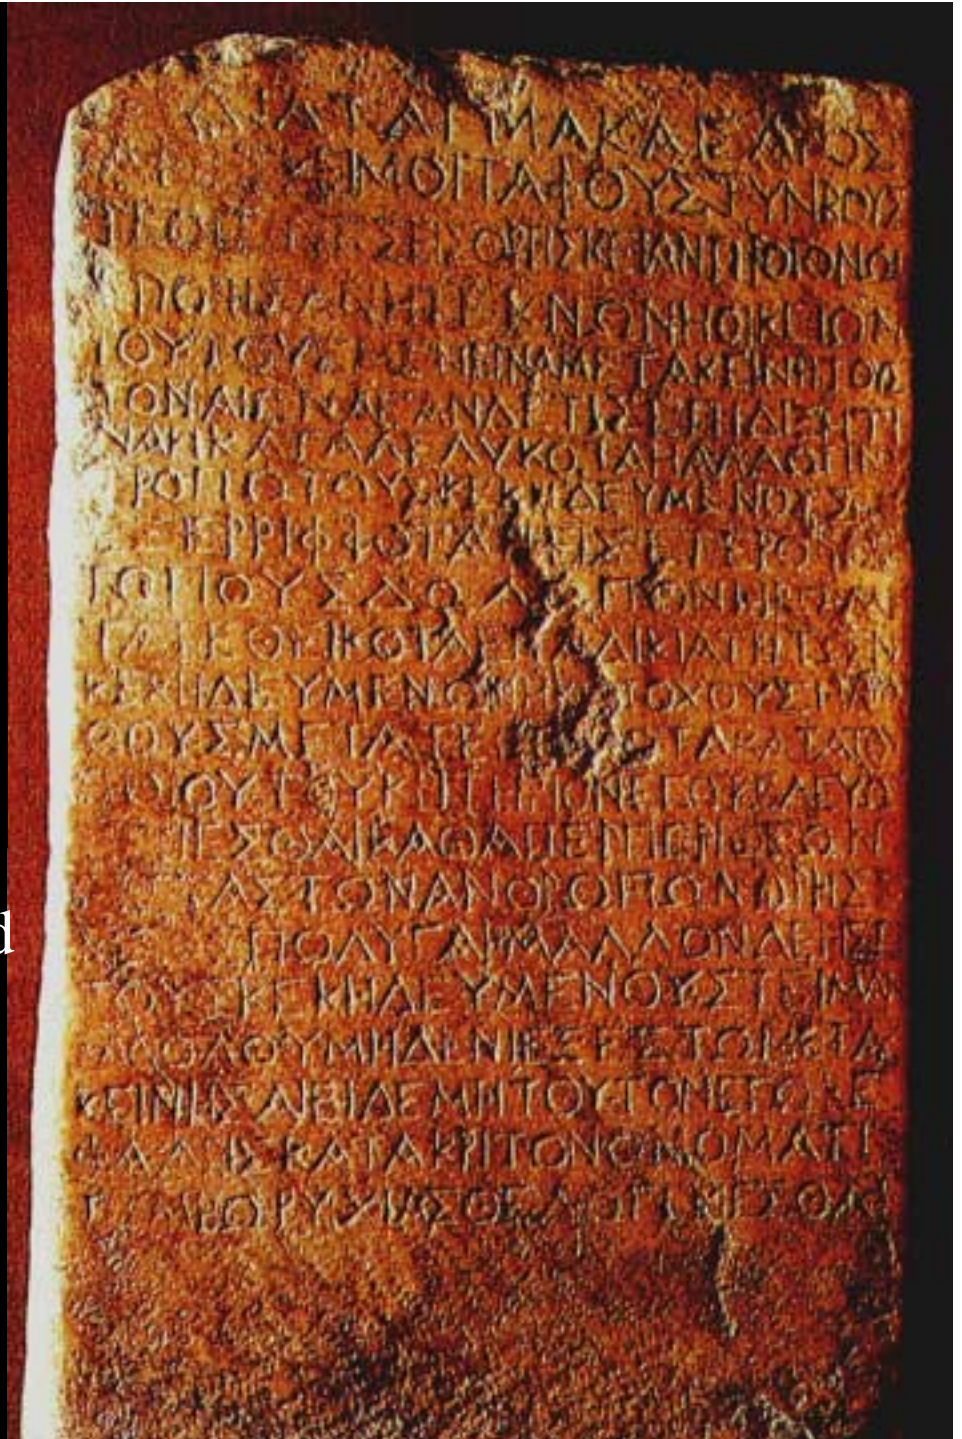 ΔΙΑΤΑΓΜΑ ΚΑΙΣΑΡΟΣ
ΜΟΙ ΤΑΦΟΥΣ ΤΥΝΒΟΥΣ
ΤΕ ΟΙΤΙΝΕΣ ΕΙΣ ΘΡΗΣΚΕΙΑΝ ΠΡΟΓΟΝΩΝ
ΕΠΟΙΗΣΑΝ Η ΤΕΚΝΩΝ Η ΟΙΚΕΙΩΝ
ΤΟΥΤΟΥΣ ΜΕΝΕΙΝ ΑΜΕΤΑΚΕΙΝΗΤΟΥΣ
ΤΟΝ ΑΙΩΝΑ ΕΑΝ ΔΕ ΤΙΣ ΕΠΙΔΙΞΗ ΤΙ
ΝΑ Η ΚΑΤΑΛΕΛΥΚΟΤΑ Η ΑΛΛΩ ΤΙΝΙ
ΤΡΟΠΩ ΤΟΥΣ ΚΕΚΗΔΕΥΜΕΝΟΥΣ
ΕΞΕΡΡΙΦΦΟΤΑ Η ΕΙΣ ΕΤΕΡΟΥΣ
ΤΟΠΟΥΣ ΔΩΛΩ ΠΟΝΗΡΩ ΜΕ
ΤΑΤΕΘΕΙΚΟΤΑ ΕΠ ΑΔΙΚΙΑ ΤΗ ΤΩΝ
ΚΕΚΗΔΕΥΜΕΝΩΝ Η ΚΑΤΟΧΟΥΣ Η ΛΙ
ΘΟΥΣ ΜΕΤΑΤΕΘΕΙΚΟΤΑ ΚΑΤΑ ΤΟΥ
ΤΟΙΟΥΤΟΥ ΚΡΙΤΗΡΙΟΝ ΕΓΩ ΚΕΛΕΥΩ
ΓΕΝΕΣΘΑΙ ΚΑΘΑΠΕΡ ΠΕΡΙ ΘΕΩΝ
ΤΑΣ ΤΩΝ ΑΝΘΡΩΠΩΝ ΘΡΗΣ
ΠΟΛΥ ΓΑΡ ΜΑΛΛΟΝ ΔΕΗΣΕΙ
ΤΟΥΣ ΚΕΚΗΔΕΥΜΕΝΟΥΣ ΤΕΙΜΑΝ
ΚΑΘΟΛΟΥ ΜΗΔΕΝΙ ΕΞΕΣΤΩ ΜΕΤΑ
ΚΕΙΝΗΣΑΙ ΕΙ ΔΕ ΜΗ ΤΟΥΤΟΝ ΕΓΩ ΚΕ
ΦΑΛΗΣ ΚΑΤΑΚΡΙΤΟΝ ΟΝΟΜΑΤΙ
ΤΥΜΒΩΡΥΧΙΑΣ ΘΕΛΩ ΓΕΝΕΣΘΑΙ